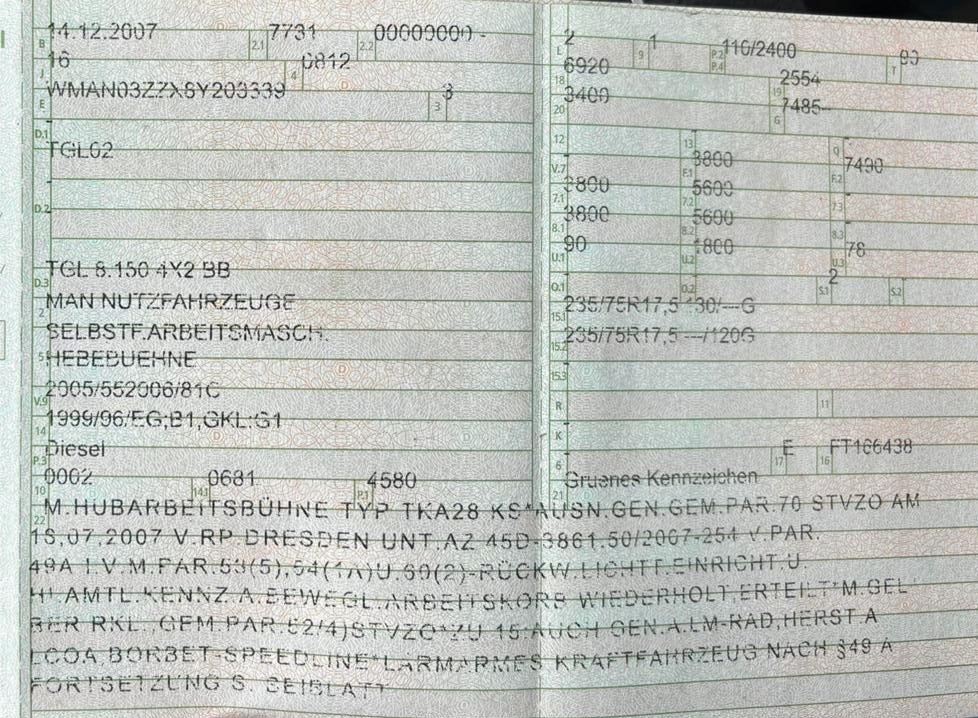 14.12.2007 2.1 7731 2.2 00000000 -
B
16 4 0812
J
WMAN03ZZXSY203339 3 3
E
D.1
TGL02
D.2
TGL 8.150 4X2 BB
D.3
MAN NUTZFAHRZEUGE
2
SELBSTF.ARBEITSMASCH.
HEBEBUEHNE
5
2005/552006/81C
V.9
1999/96/EG;B1,GKL:G1
14
Diesel
P.3
0002 0681 4580
10 14.1 P.1
L 2 9 1 P.2 P.4 110/2400 T 90
18 6920 19 2554
20 3400 G 7485-
12 13 Q
V.7 F.1 3800 F.2 7490
7.1 3800 7.2 5600 7.3
8.1 3800 8.2 5600 8.3
U.1 90 U.2 1800 U.3 78
O.1 O.2 S.1 2 S.2
15.1 235/75R17,5 130/---G
15.2 235/75R17,5 ---/120G
15.3
R 11
K
6 17 E 16 FT166438
21 Gruenes Kennzeichen
22
M.HUBARBEITSBÜHNE TYP TKA28 KS*AUSN.GEN.GEM.PAR.70 STVZO AM
18.07.2007 V.RP DRESDEN UNT.AZ 45D-3861.50/2007-254 V.PAR.
49A I.V.M.PAR.53(5),54(1A)U.60(2)-RÜCKW.LICHTT.EINRICHT.U.
HI.AMTL.KENNZ.A.BEWEGL.ARBEITSKORB WIEDERHOLT,ERTEILT*M.GEL
BER RKL.,GEM.PAR.52/4)STVZO*ZU 15:AUCH GEN.A.LM-RAD,HERST.A
LCOA,BORBET-SPEEDLINE*LÄRMARMES KRAFTFAHRZEUG NACH §49 A
FORTSETZUNG S. BEIBLATT